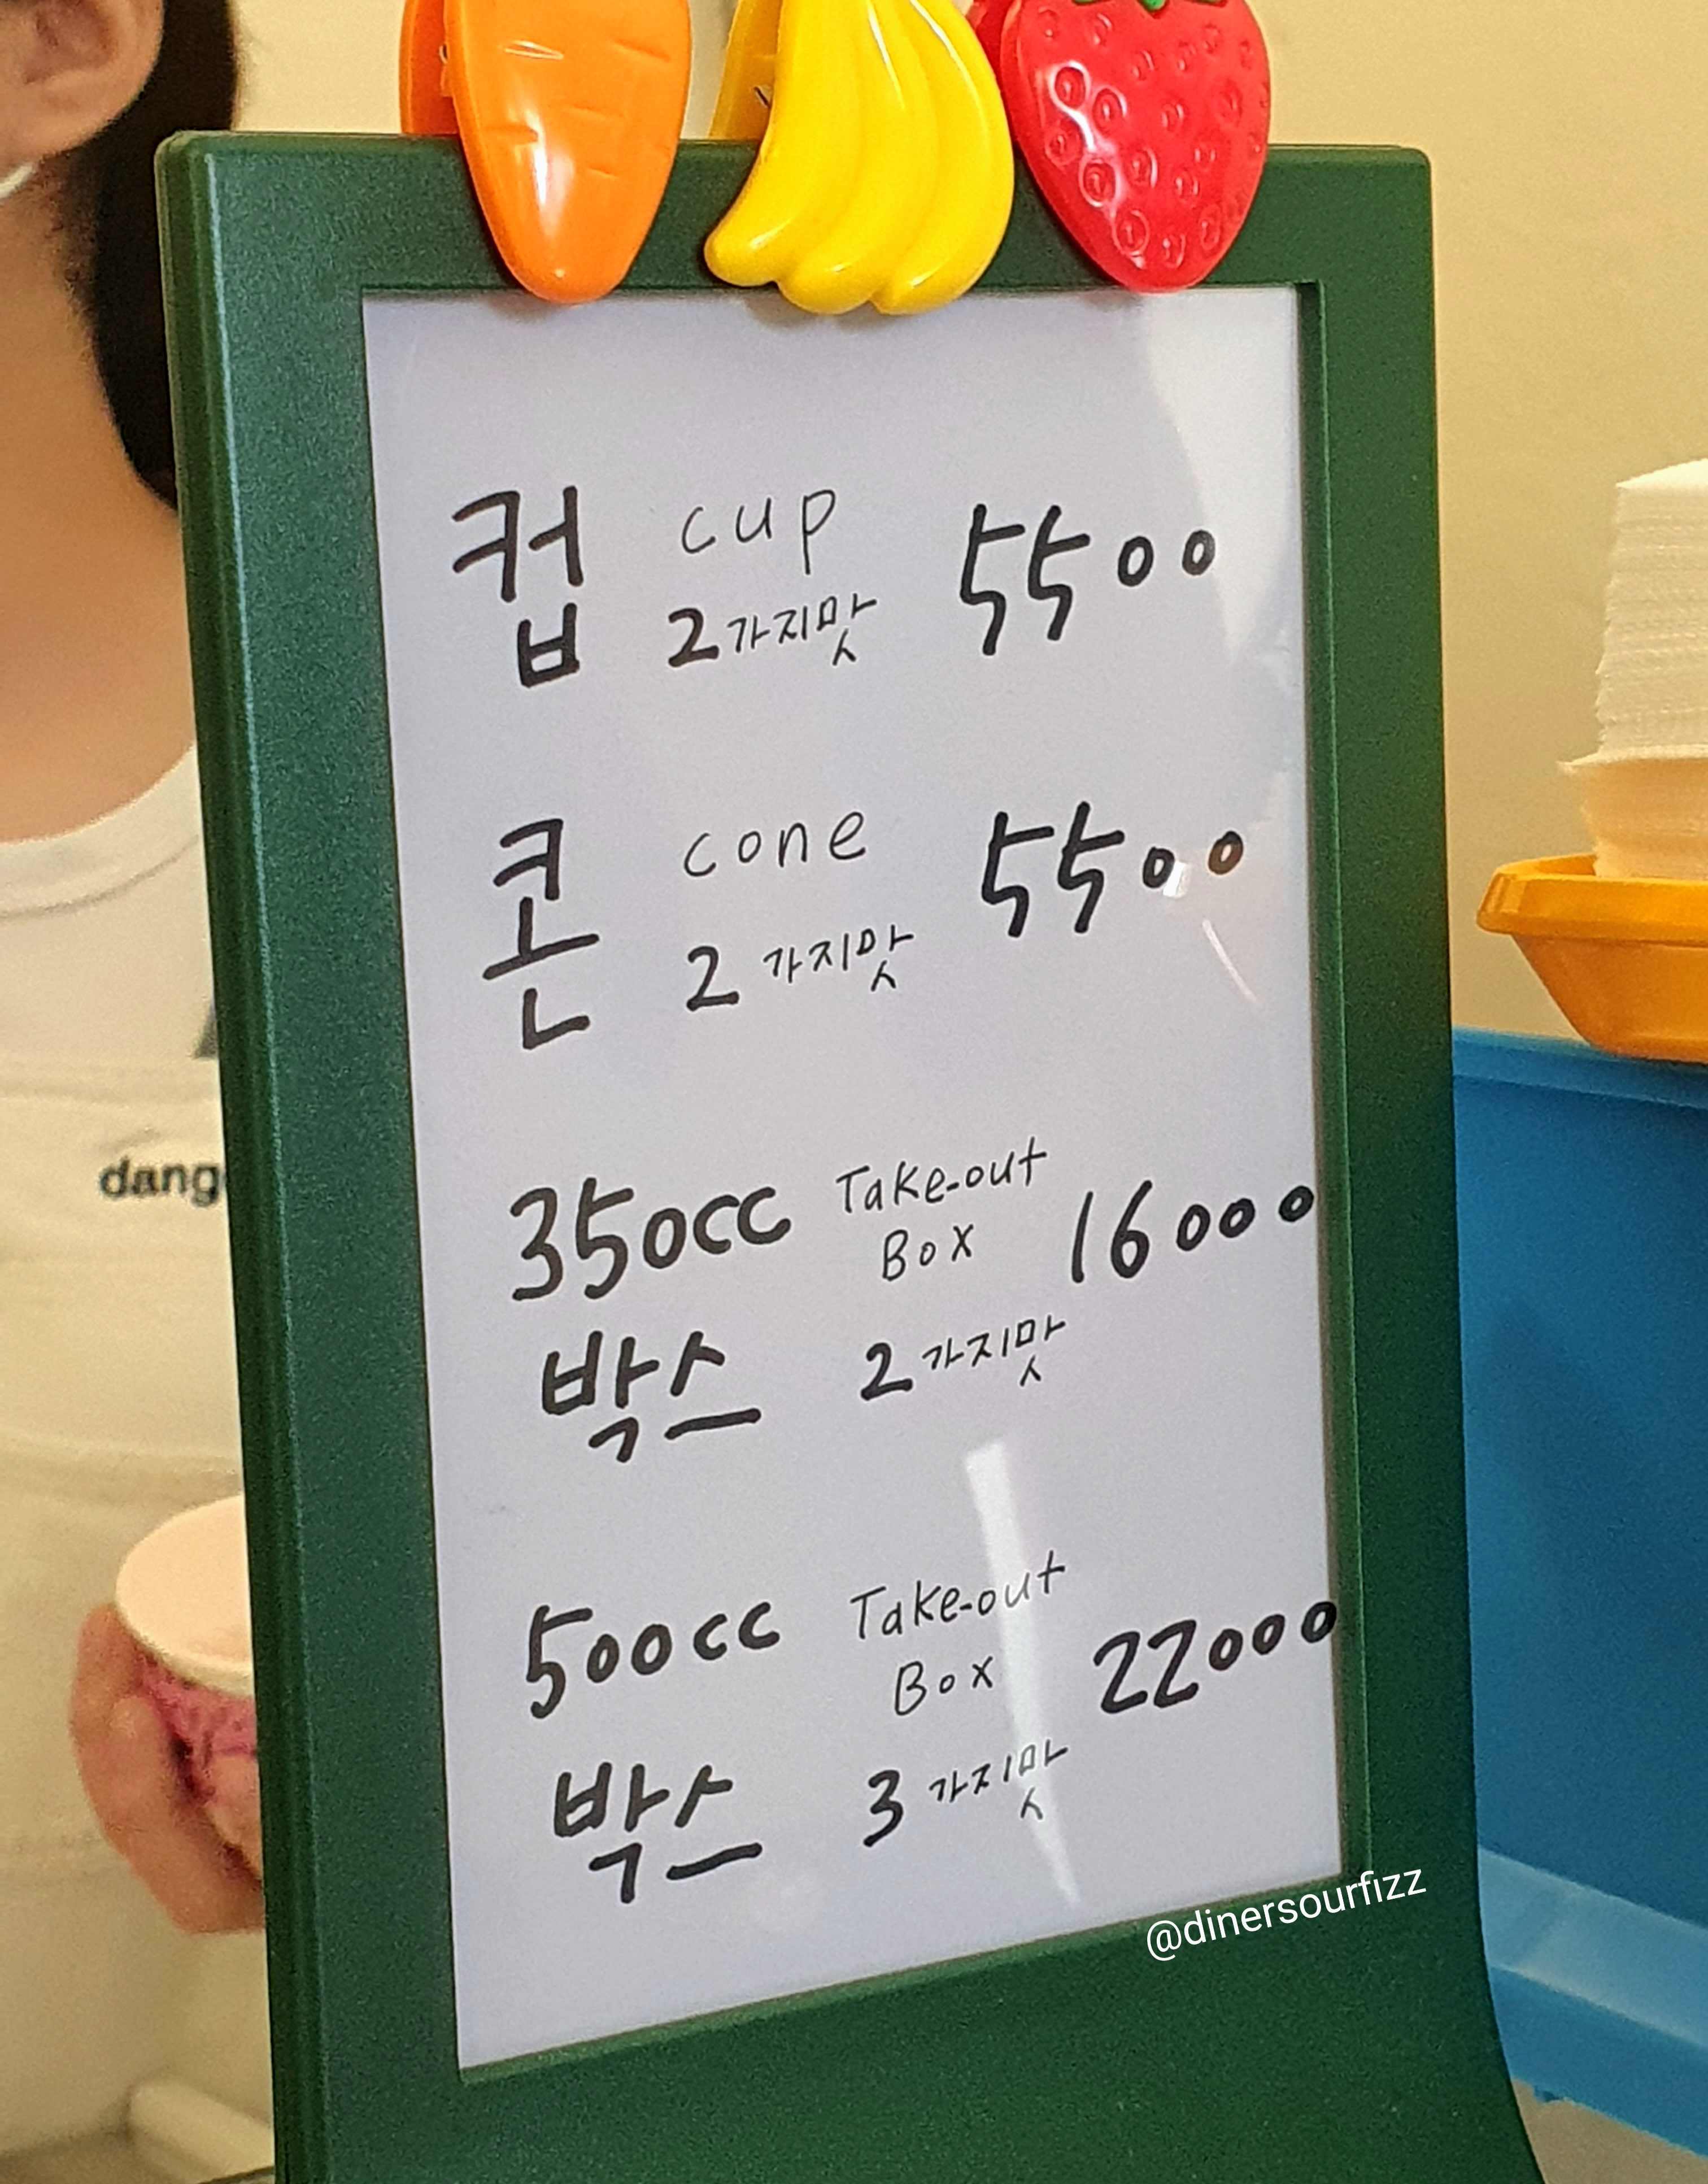 컵 cup 5500
2가지맛
콘 cone 5500
2 가지맛
350cc Take-out 16000
Box
박스 2 가지맛
500cc Take-out 22000
Box
박스 3 가지맛
dang
@dinersourfizz